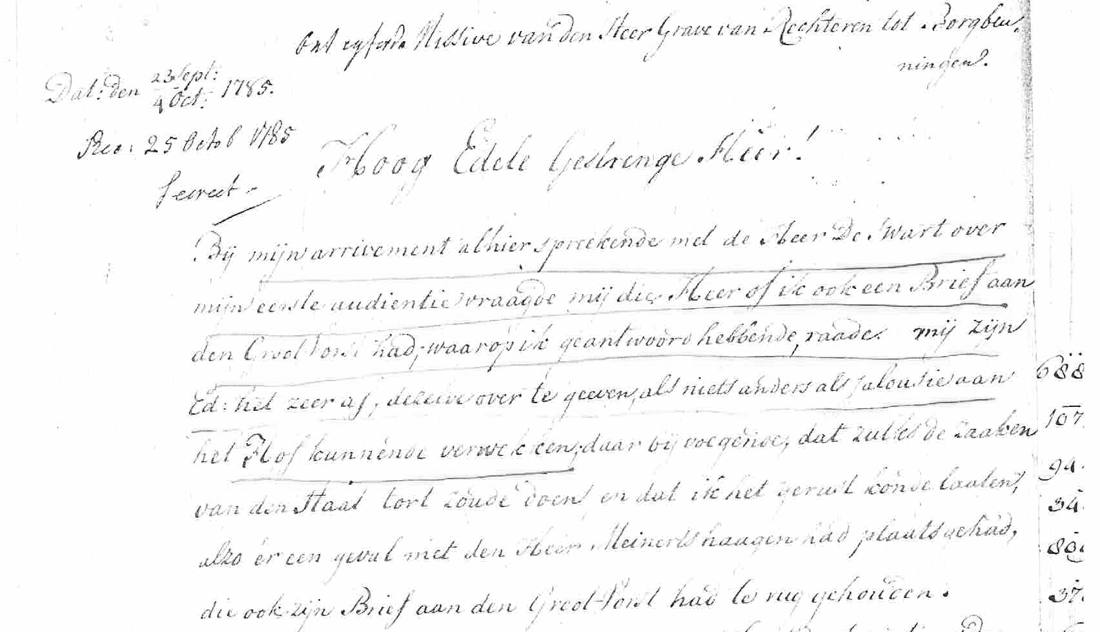 Ontcyferde Missive van den Heer Grave van Rechteren tot Borgbeu,
ningen.
Dat: den 23 Sept: / 4 Oct: 1785.
Rec: 25 Octob 1785
Secreet
Hoog Edele Gestrenge Heer!
Bij mijn arrivement alhier spreekende met de Heer De Swart over
mijn eerste audientie vraagde mij die Heer of ik ook een Brief aan
den Groot Vorst had, waarop ik geantwoord hebbende, raade mij zijn
Ed: het zeer af, dezelve over te geeven, als niets anders als Jalousie aan
het Hof kunnende verwekken, daar bij voegende, dat zulks de zaaken
van den Staat tort zoude doen, en dat ik het gerust konde laaten,
alzo er een geval met den Heer Meinertshaagen had plaats gehad,
die ook zijn Brief aan den Groot-Vorst had te rug gehouden.
688
107
94
34
80
37